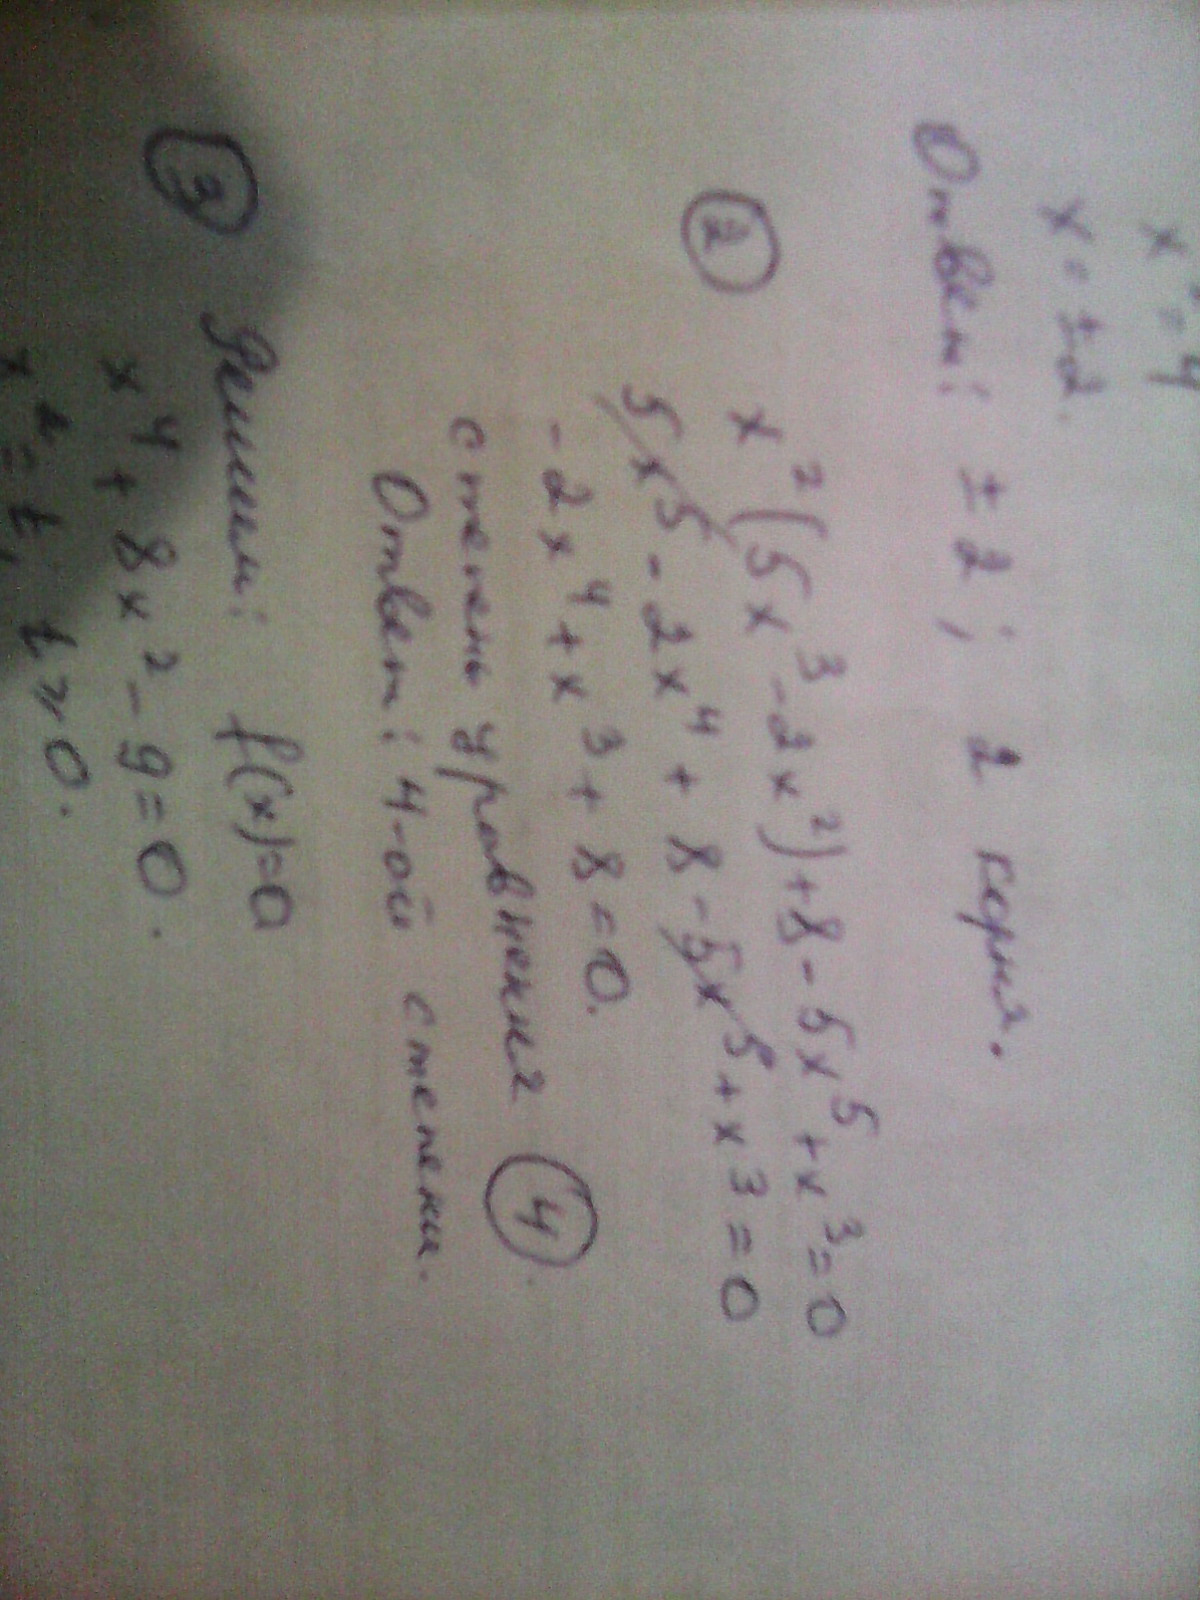 x² = 4
x = ±2.
Ответ: ±2; 2 корня.
② x²(5x³ - 2x²) + 8 - 5x⁵ + x³ = 0
5x⁵ - 2x⁴ + 8 - 5x⁵ + x³ = 0
-2x⁴ + x³ + 8 = 0.
степень уравнения ④.
Ответ: 4-ой степени.
③ Решим: f(x)=0
x⁴ + 8x² - 9 = 0.
x² = t, t ≥ 0.